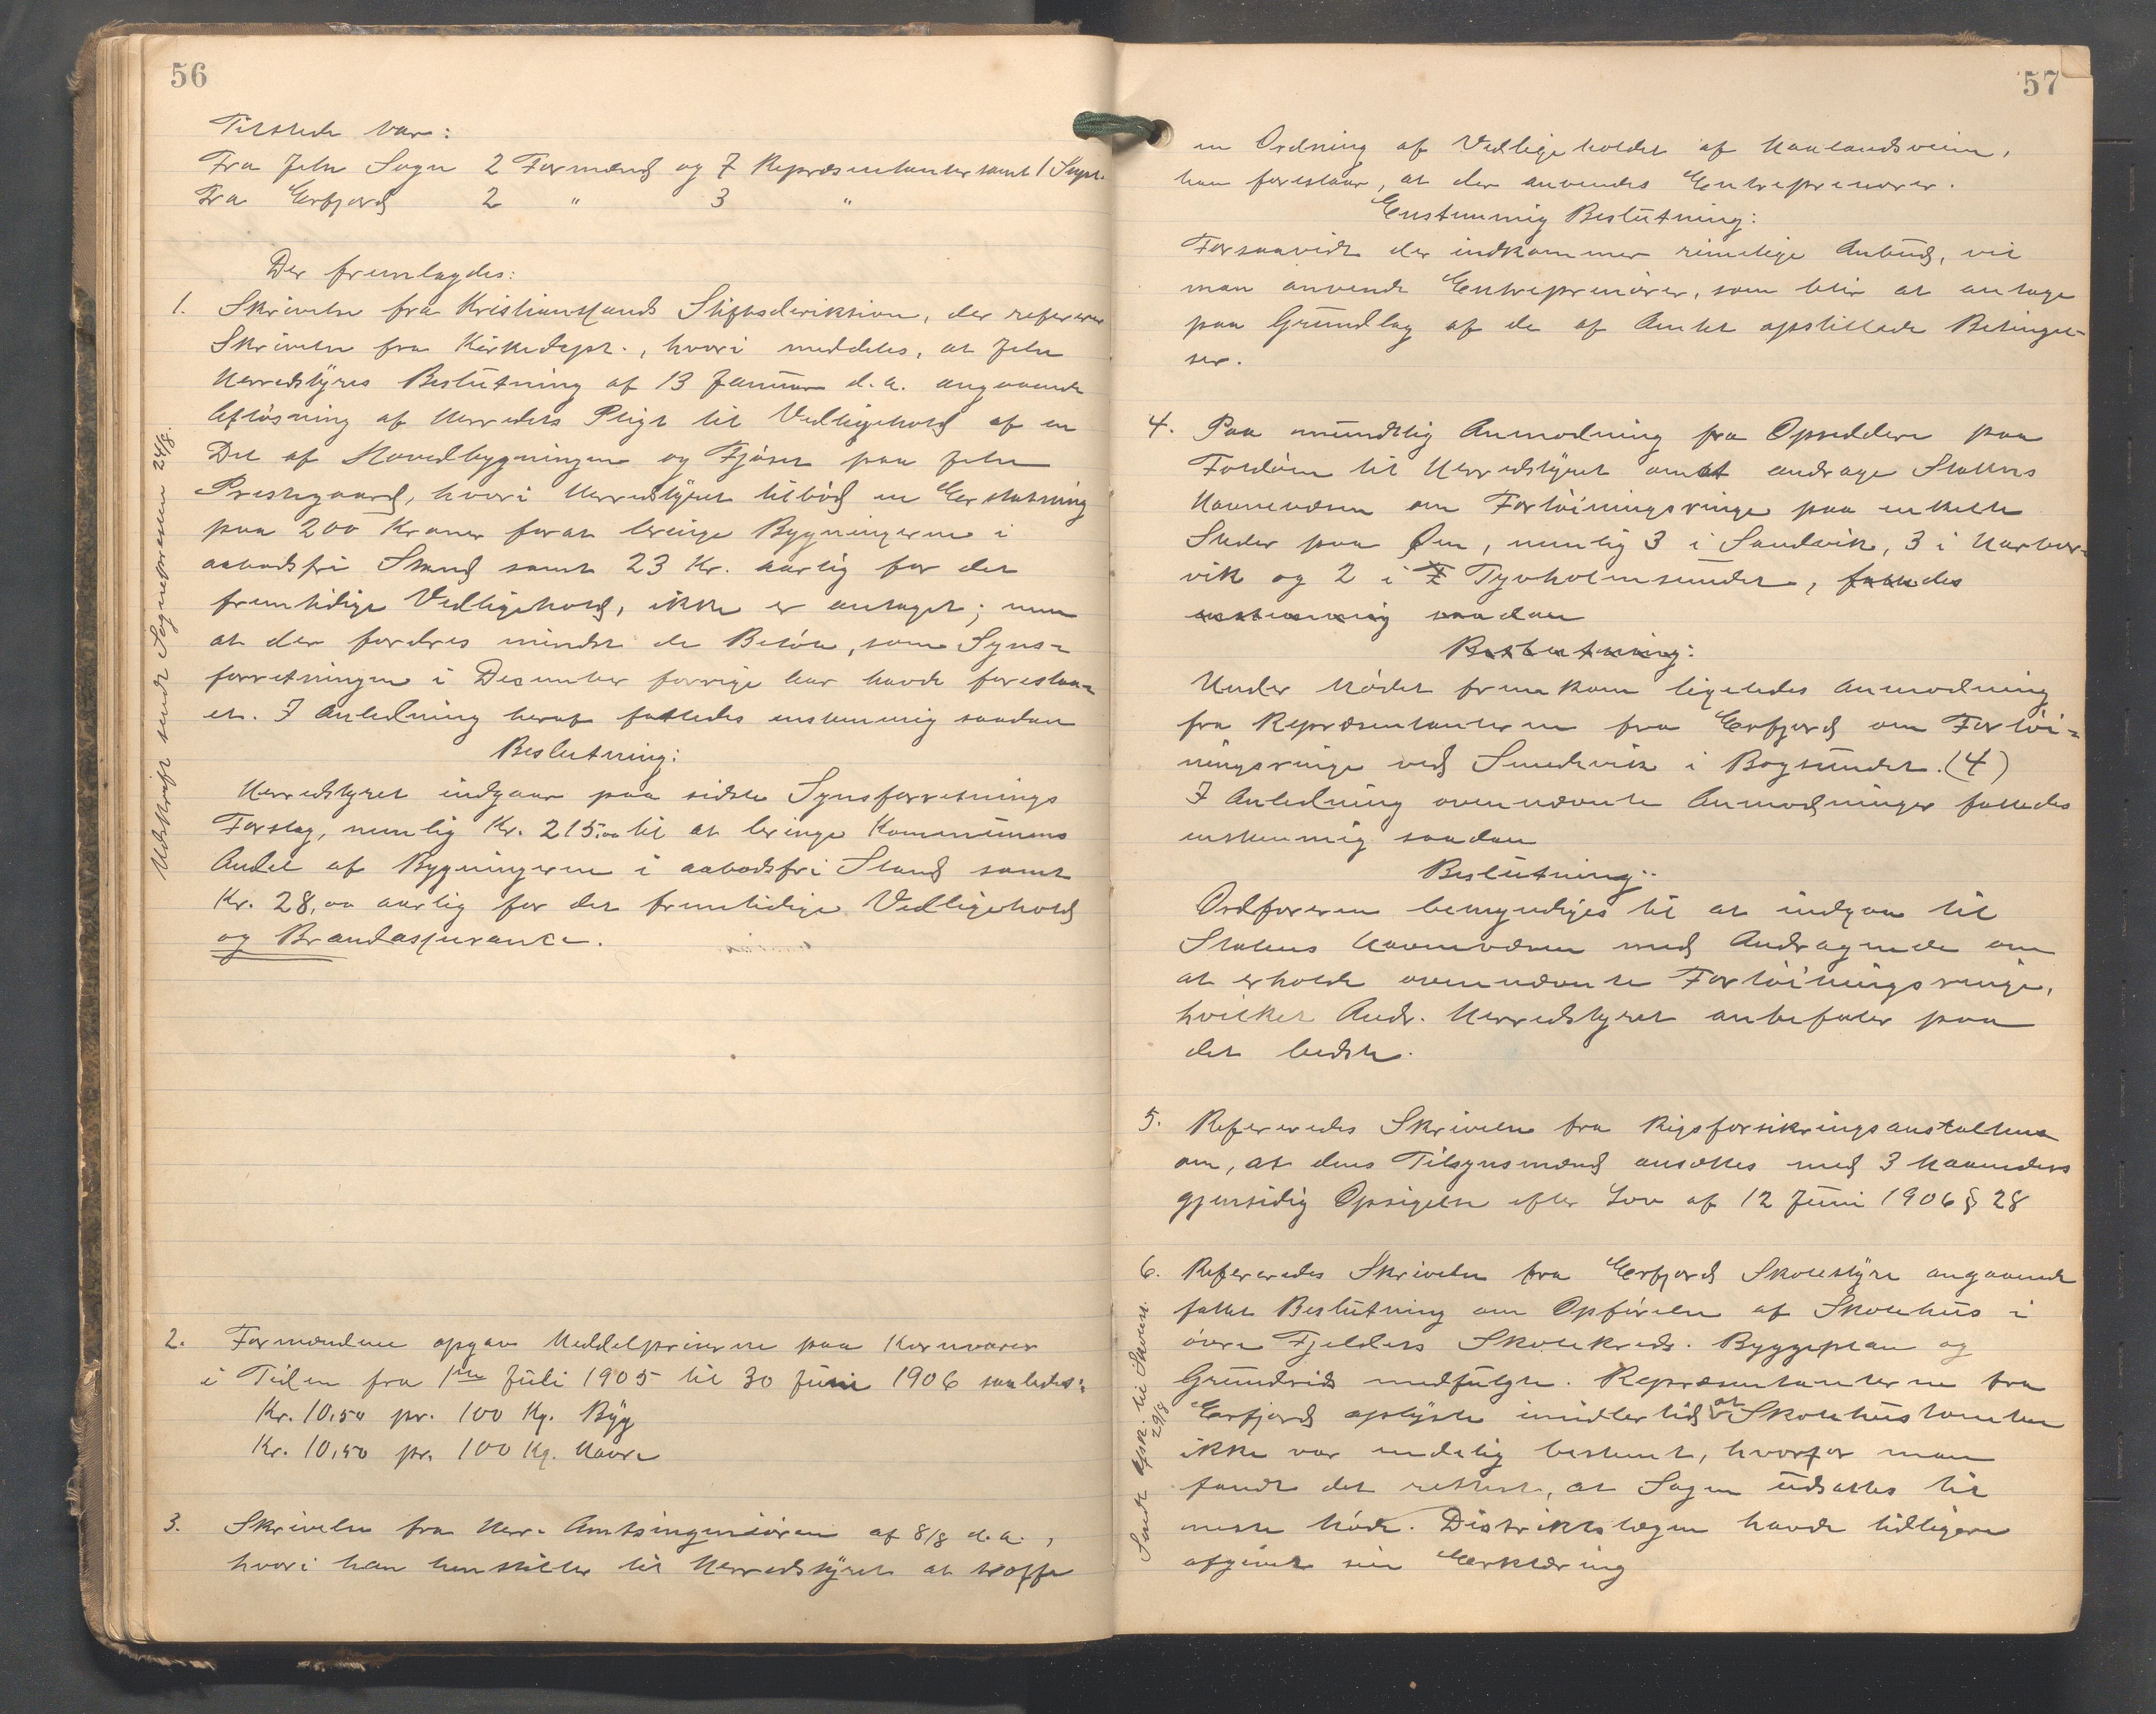 56
Tilstede var:
Fra Jelse Sogn 2 Formænd og 7 Repræsentanter samt 1 Supl.
Fra Erfjord 2 " 3 "
Der fremlagdes:
1. Skrivelse fra Kristianssands Stiftsdirektion, der referer
Skrivelse fra Kirkedept., hvori meddeles, at Jelse
Herredstyres Beslutning af 13 Januar d.a. angaaende
Afløsning af Herredets Pligt til Vedligehold af en
Del af Hovedbygningen og Fjøset paa Jelse
Prestegaard, hvori Herredstyret tilbød en Erstatning
paa 200 Kroner for at bringe Bygningerne i
aabodsfri Stand samt 23 Kr. aarlig for det
fremtidige Vedligehold, ikke er antaget; men
at der fordres mindst de Beløb, som Syns-
forretningen i December forrige Aar havde foreslaa-
et. I Anledning heraf fattedes enstemmig saadan
Beslutning:
Herredstyret indgaar paa sidste Synsforretnings
Forslag, nemlig Kr. 215,00 til at bringe Kommunens
Andel af Bygningerne i aabodsfri Stand samt
Kr. 28,00 aarlig for det fremtidige Vedligehold
og Brandassurance.
Udskrift sendt Sognepresten 24/8.
2. Formændene opgav Middelpriserne paa Kornvarer
i Tiden fra 1ste Juli 1905 til 30 Juni 1906 saaledes:
Kr. 10,50 pr. 100 Kg. Byg
Kr. 10,50 pr. 100 Kg. Havre
3. Skrivelse fra Herr Amtsingeniøren af 8/8 d.a.,
hvori han henstiller til Herredstyret at træffe
57
en Ordning af Vedligeholdet af Haalandsveien,
han foreslaar, at der anvendes Entreprenører.
Enstemmig Beslutning:
Forsaavidt der indkommer rimelige Anbud, vil
man anvende Entreprenører, som blir at antage
paa Grundlag af de af Amtet opstillede Betingel-
ser.
4. Paa mundtlig Anmodning fra Opsidderne paa
Foldøen til Herredstyret om at andrage Statens
Havnevæsen om Fortøiningsringe paa enkelte
Steder paa Øen, nemlig 3 i Sandvik, 3 i Narber-
vik og 2 i Tyvholmsundet, fattedes
enstemmig saadan
Beslutning:
Under Mødet fremkom ligeledes Anmodning
fra Repræsentanterne fra Erfjord om Fortøi-
ningsringe ved Smedvik i Bogsundet. (4)
I Anledning ovennævnte Anmodninger fattedes
enstemmig saadan
Beslutning:
Ordføreren bemyndiges til at indgaa til
Statens Havnevæsen med Andragende om
at erholde ovennævnte Fortøiningsringe,
hvilket Andr. Herredstyret anbefaler paa
det bedste.
5. Refereredes Skrivelse fra Rigsforsikringsanstalten
om, at dens Tilsynsmænd ansættes med 3 Maaneders
gjensidig Opsigelse efter Lov af 12 Juni 1906 § 28
6. Refereredes Skrivelse fra Erfjord Skolestyre angaaende
fattet Beslutning om Opførelse af Skolehus i
øvre Fjelders Skolekreds. Byggeplan og
Grundrids medfulgte. Repræsentanterne fra
Erfjord oplyste imidlertid at Skolehustomten
ikke var endelig bestemt, hvorfor man
fandt det rettest, at Sagen udsattes til
neste Møde. Distriktslægen havde tidligere
afgivet sin Erklæring
Sendt Afskr. til Skolest. 29/8